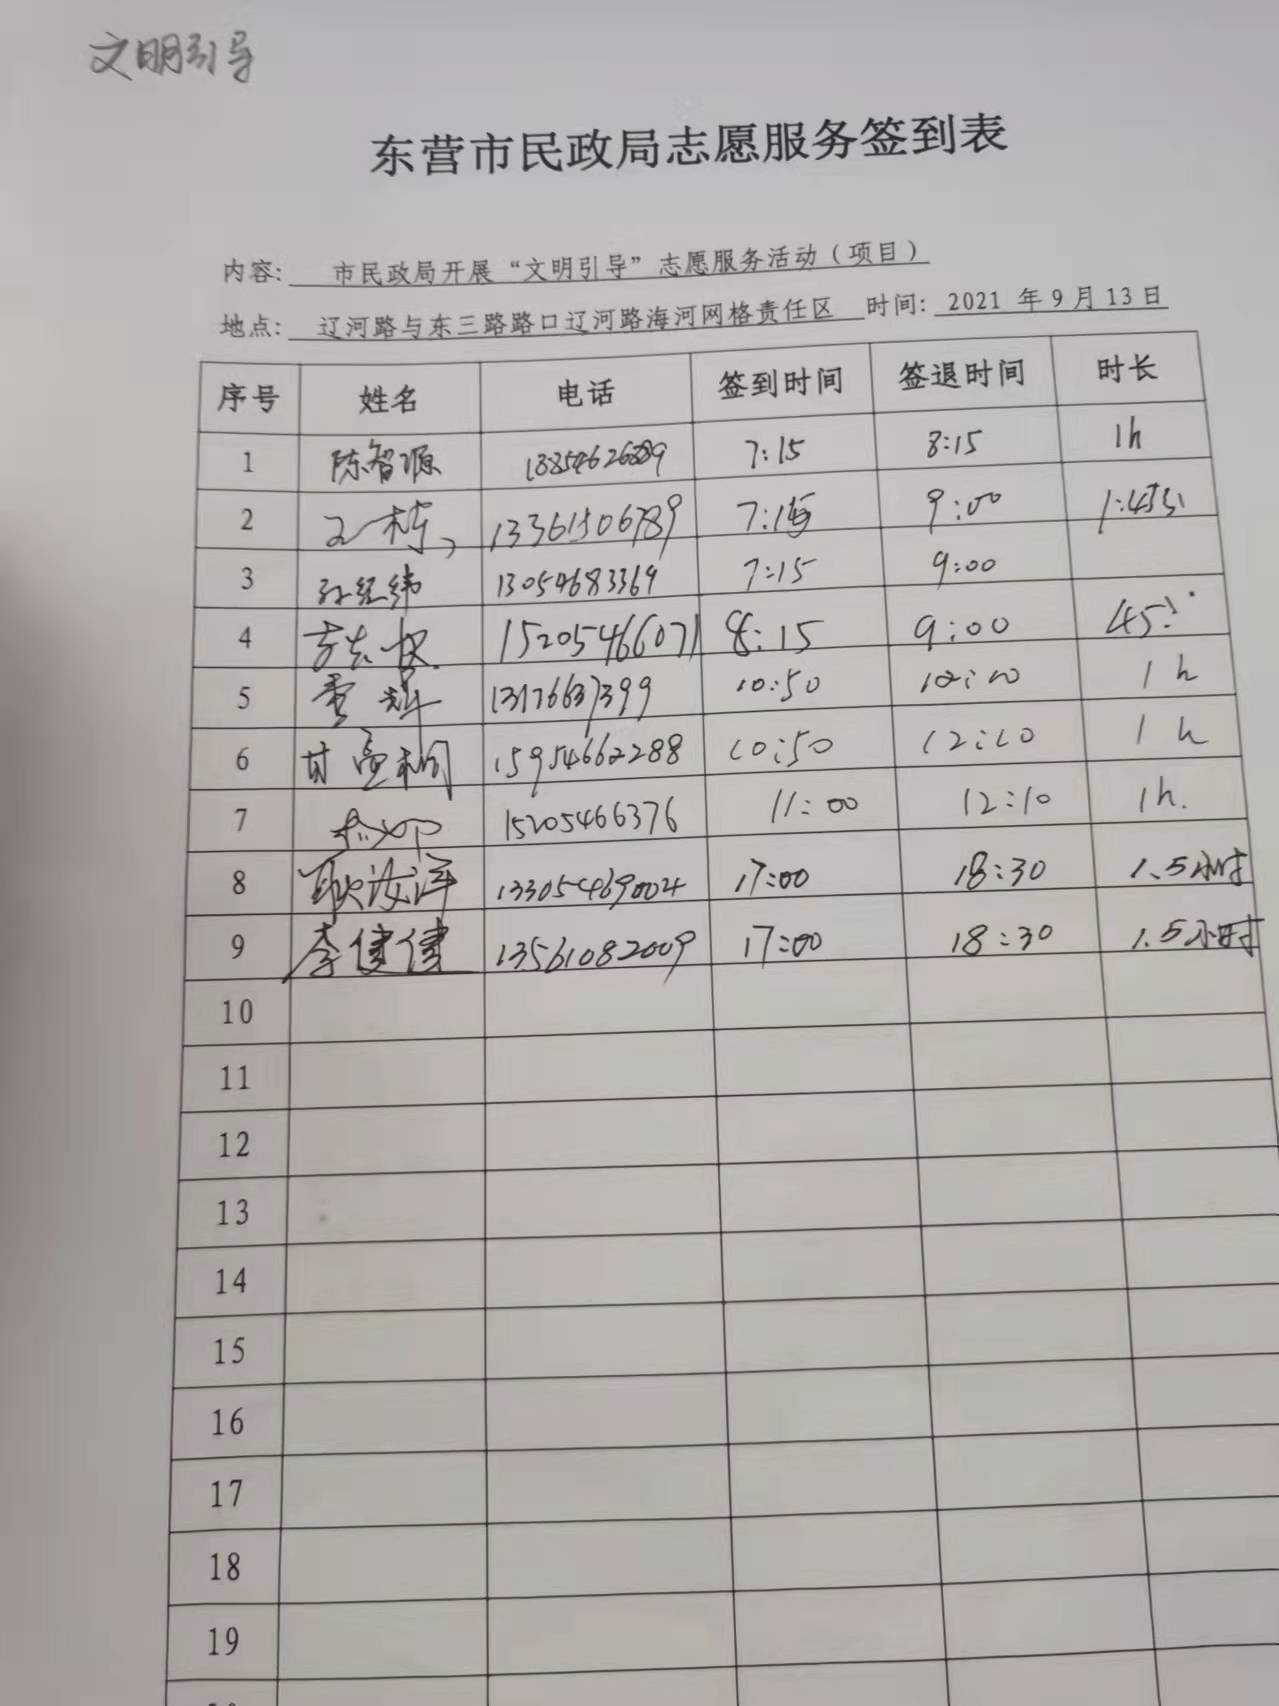 文明引导
东营市民政局志愿服务签到表
内容: 市民政局开展“文明引导”志愿服务活动（项目）
地点: 辽河路与东三路路口辽河路海河网格责任区 时间: 2021 年 9 月 13 日
序号 姓名 电话 签到时间 签退时间 时长
1 陈智源 7:15 8:15 1h
2 13361506789 7:15 9:00
3 孙经纬 13054683369 7:15 9:00
4 15205466071 8:15 9:00
5 13176637399 10:50 1h
6 15954662288 10:50 12:10 1h
7 15205466376 11:00 12:10 1h.
8 耿汝洋 13305469004 17:00 18:30 1.5小时
9 李健健 13561082009 17:00 18:30 1.5小时
10
11
12
13
14
15
16
17
18
19